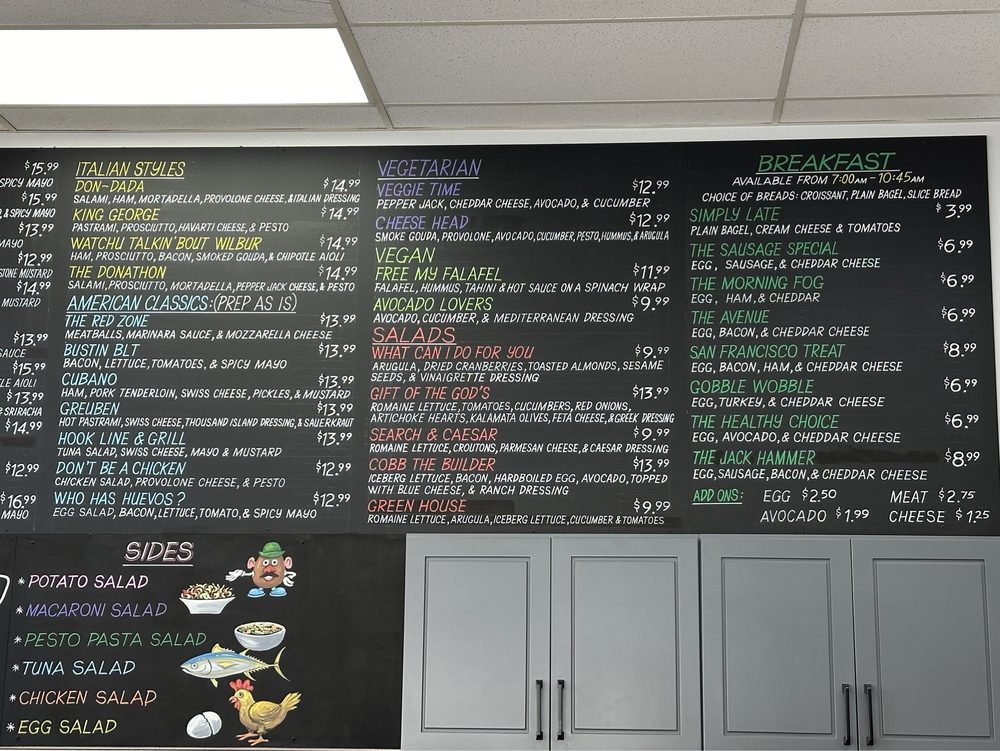 $15.99
SPICY MAYO
$15.99
, & SPICY MAYO
$13.99
MAYO
$12.99
STONE MUSTARD
$14.99
MUSTARD
$13.99
SAUCE
$15.99
LE AIOLI
$13.99
& SRIRACHA
$14.99
$12.99
$16.99
MAYO
ITALIAN STYLES
DON~DADA $14.99
SALAMI, HAM, MORTADELLA, PROVOLONE CHEESE, & ITALIAN DRESSING
KING GEORGE $14.99
PASTRAMI, PROSCIUTTO, HAVARTI CHEESE, & PESTO
WATCHU TALKIN' BOUT WILBUR $14.99
HAM, PROSCIUTTO, BACON, SMOKED GOUDA, & CHIPOTLE AIOLI
THE DONATHON $14.99
SALAMI, PROSCIUTTO, MORTADELLA, PEPPER JACK CHEESE, & PESTO
AMERICAN CLASSICS: (PREP AS IS)
THE RED ZONE $13.99
MEATBALLS, MARINARA SAUCE, & MOZZARELLA CHEESE
BUSTIN BLT $13.99
BACON, LETTUCE, TOMATOES, & SPICY MAYO
CUBANO $13.99
HAM, PORK TENDERLOIN, SWISS CHEESE, PICKLES, & MUSTARD
GREUBEN $13.99
HOT PASTRAMI, SWISS CHEESE, THOUSAND ISLAND DRESSING, & SAUERKRAUT
HOOK LINE & GRILL $13.99
TUNA SALAD, SWISS CHEESE, MAYO & MUSTARD
DON'T BE A CHICKEN $12.99
CHICKEN SALAD, PROVOLONE CHEESE, & PESTO
WHO HAS HUEVOS? $12.99
EGG SALAD, BACON, LETTUCE, TOMATO, & SPICY MAYO
VEGETARIAN
VEGGIE TIME $12.99
PEPPER JACK, CHEDDAR CHEESE, AVOCADO, & CUCUMBER
CHEESE HEAD $12.99
SMOKE GOUDA, PROVOLONE, AVOCADO, CUCUMBER, PESTO, HUMMUS, & ARUGULA
VEGAN
FREE MY FALAFEL $11.99
FALAFEL, HUMMUS, TAHINI & HOT SAUCE ON A SPINACH WRAP
AVOCADO LOVERS $9.99
AVOCADO, CUCUMBER, & MEDITERRANEAN DRESSING
SALADS
WHAT CAN I DO FOR YOU $9.99
ARUGULA, DRIED CRANBERRIES, TOASTED ALMONDS, SESAME
SEEDS, & VINAIGRETTE DRESSING
GIFT OF THE GOD'S $13.99
ROMAINE LETTUCE, TOMATOES, CUCUMBERS, RED ONIONS,
ARTICHOKE HEARTS, KALAMATA OLIVES, FETA CHEESE, & GREEK DRESSING
SEARCH & CAESAR $9.99
ROMAINE LETTUCE, CROUTONS, PARMESAN CHEESE, & CAESAR DRESSING
COBB THE BUILDER $13.99
ICEBERG LETTUCE, BACON, HARDBOILED EGG, AVOCADO, TOPPED
WITH BLUE CHEESE, & RANCH DRESSING
GREEN HOUSE $9.99
ROMAINE LETTUCE, ARUGULA, ICEBERG LETTUCE, CUCUMBER & TOMATOES
BREAKFAST
AVAILABLE FROM 7:00AM - 10:45AM
CHOICE OF BREADS: CROISSANT, PLAIN BAGEL, SLICE BREAD
SIMPLY LATE $3.99
PLAIN BAGEL, CREAM CHEESE & TOMATOES
THE SAUSAGE SPECIAL $6.99
EGG, SAUSAGE, & CHEDDAR CHEESE
THE MORNING FOG $6.99
EGG, HAM, & CHEDDAR
THE AVENUE $6.99
EGG, BACON, & CHEDDAR CHEESE
SAN FRANCISCO TREAT $8.99
EGG, BACON, HAM, & CHEDDAR CHEESE
GOBBLE WOBBLE $6.99
EGG, TURKEY, & CHEDDAR CHEESE
THE HEALTHY CHOICE $6.99
EGG, AVOCADO, & CHEDDAR CHEESE
THE JACK HAMMER $8.99
EGG, SAUSAGE, BACON, & CHEDDAR CHEESE
ADD ONS: EGG $2.50 MEAT $2.75
AVOCADO $1.99 CHEESE $1.25
SIDES
* POTATO SALAD
* MACARONI SALAD
* PESTO PASTA SALAD
* TUNA SALAD
* CHICKEN SALAD
* EGG SALAD